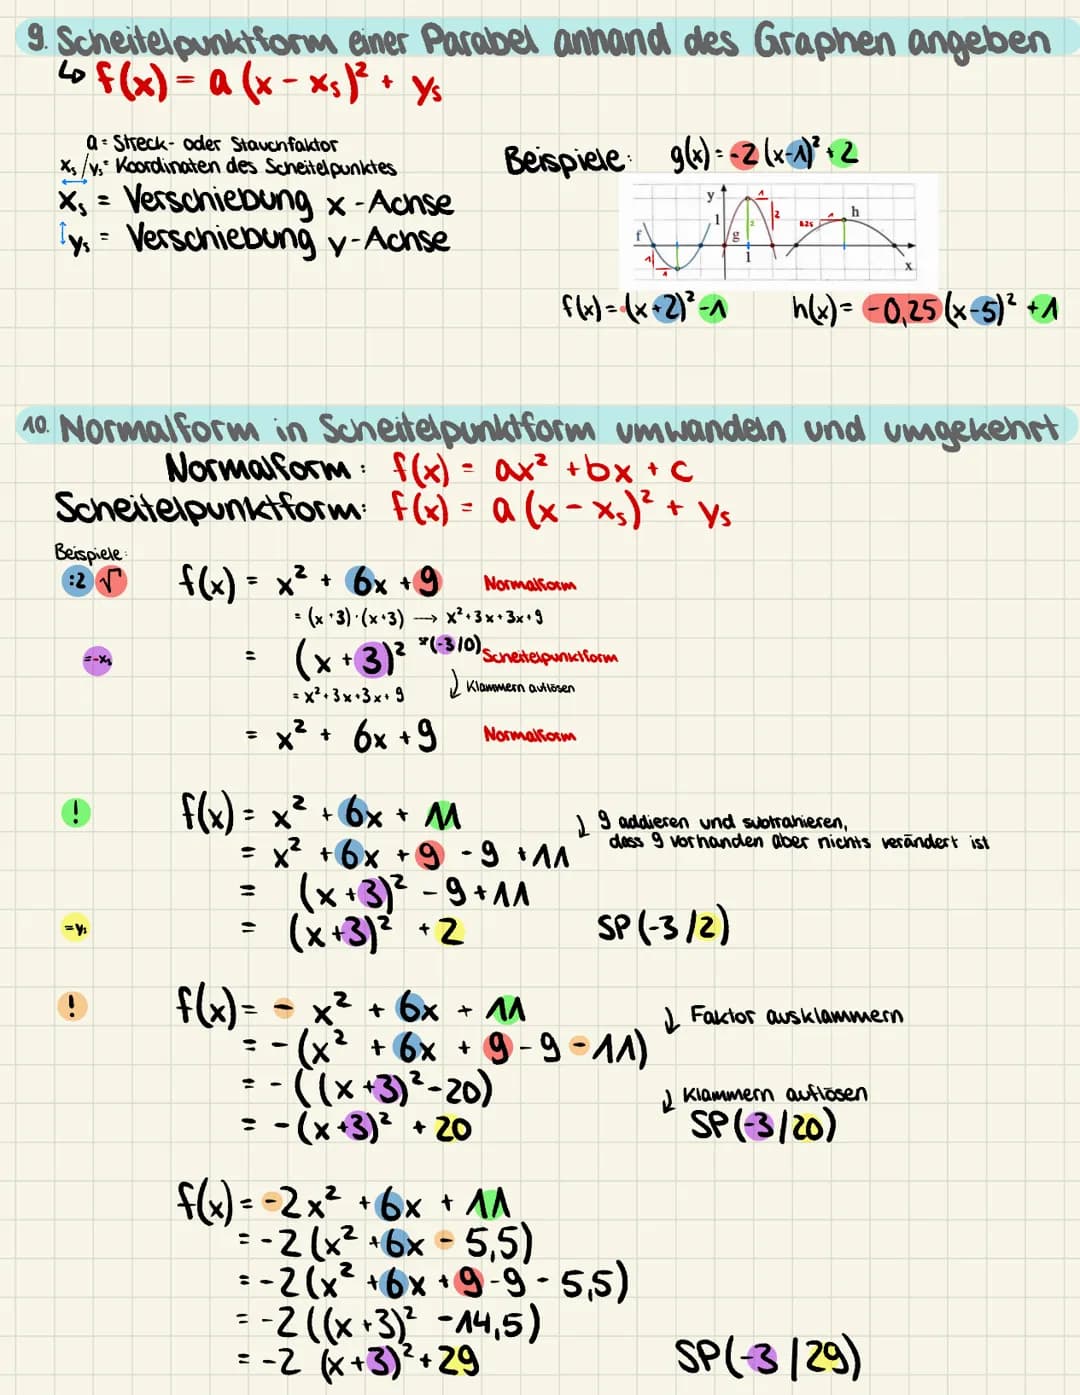 9. Scheitelpunktform einer Parabel anhand des Graphen angeben
↳ f(x) = a (x - xₛ)² + yₛ
a = Streck- oder Stauchfaktor
xₛ/yₛ = Koordinaten des Scheitelpunktes
xₛ = Verschiebung x-Achse
yₛ = Verschiebung y-Achse
Beispiele: g(x) = -2 (x-1)² + 2
y
1
f
g
h
1
x
1
1
1
2
2
0,25
1
f(x) = (x+2)² - 1
h(x) = -0,25 (x-5)² + 1
10. Normalform in Scheitelpunktform umwandeln und umgekehrt
Normalform: f(x) = ax² + bx + c
Scheitelpunktform: f(x) = a (x - xₛ)² + yₛ
Beispiele:
:2 √ f(x) = x² + 6x + 9 Normalform
= (x+3)·(x+3) → x²+3x+3x+9
=-xₛ = (x+3)² SP(-3/0) Scheitelpunktform
= x²+3x+3x+9 ↓ Klammern auflösen
= x² + 6x + 9 Normalform
! f(x) = x² + 6x + 11 ↓ 9 addieren und subtrahieren,
dass 9 vorhanden aber nichts verändert ist
= x² + 6x + 9 - 9 + 11
= (x+3)² - 9 + 11
=yₛ = (x+3)² + 2 SP (-3/2)
! f(x) = - x² + 6x + 11 ↓ Faktor ausklammern
= - (x² + 6x + 9 - 9 - 11)
= - ((x+3)² - 20) ↓ Klammern auflösen
= - (x+3)² + 20 SP (-3/20)
f(x) = -2x² + 6x + 11
= -2 (x² + 6x - 5,5)
= -2 (x² + 6x + 9 - 9 - 5,5)
= -2 ((x+3)² - 14,5)
= -2 (x+3)² + 29 SP (-3 | 29)